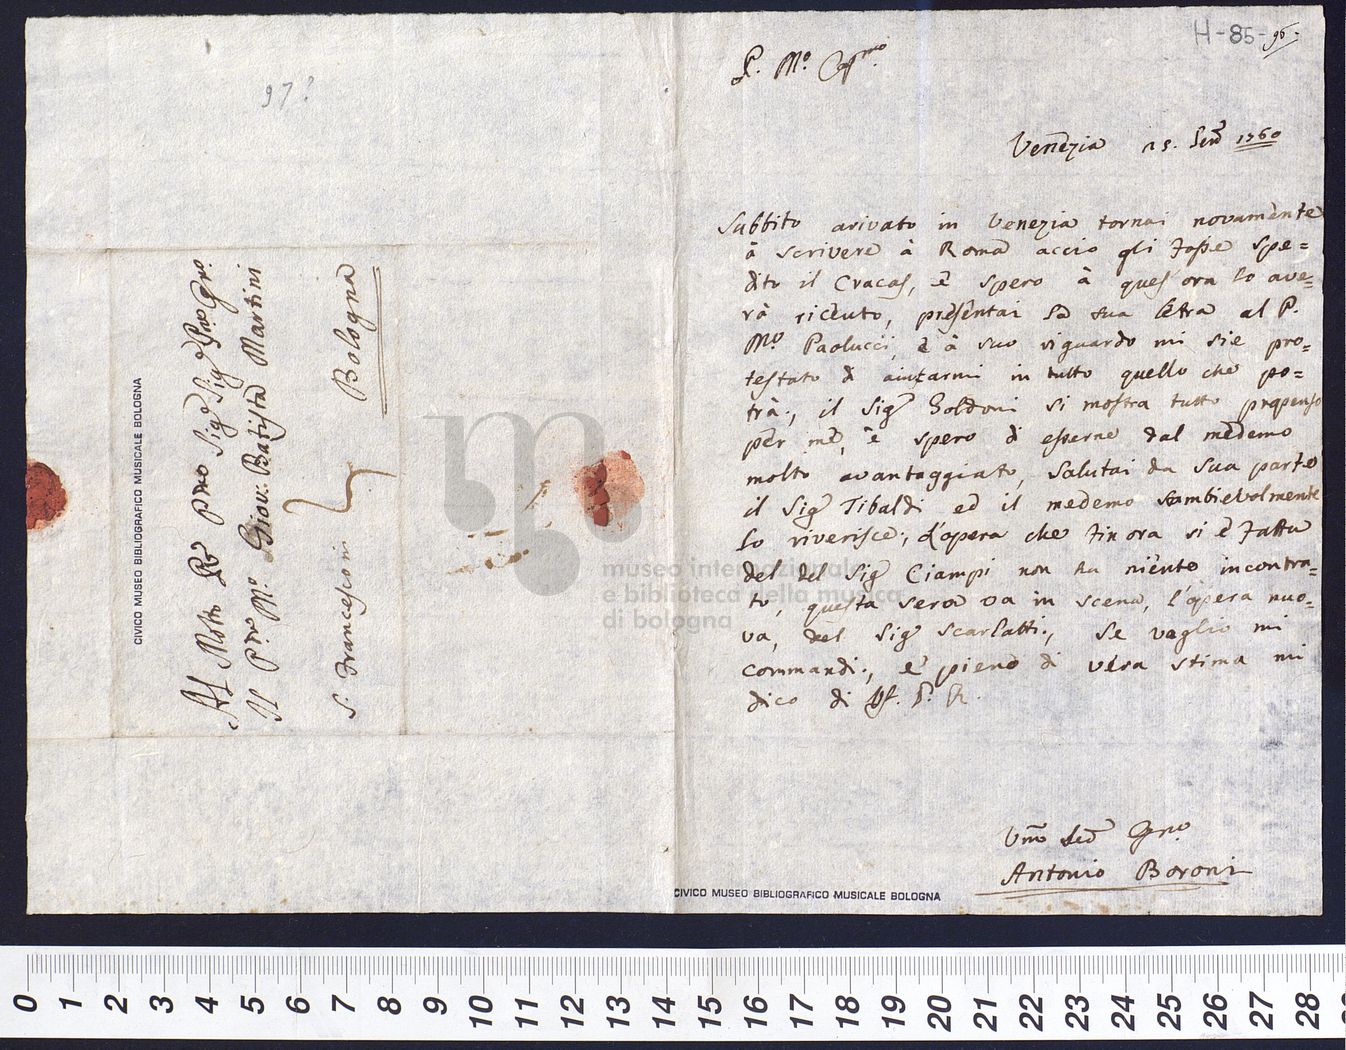 H-85-96-
97?
P. M.o
Venezia 25. 1760
Subbito arivato in Venezia tornai novamente
à scrivere à Roma acciò gli fosse spe=
dito il Cracas, è spero à quest'ora lo ave=
rà riceuto, presentai la sua letra al P.
M.o Paolucci, è à suo riguardo mi si è pro=
testato di aiutarmi in tutto quello che po=
trà, il Sig.r Goldoni si mostra tutto propenso
per me, è spero di esserne dal medemo
molto avantaggiato, salutai da sua parte
il Sig.r Tibaldi ed il medemo scambievolmente
lo riverisce, l'opera che fin ora si è fatta
del del Sig.r Ciampi non ha niente incontra=
to, questa sera va in scena, l'opera nuo=
va, del Sig.r Scarlatti, Se vaglio mi
commandi, e pieno di vera stima mi
dico di
Antonio Boroni
Al Molto Rdo Pre Sig.r Sig.r
Il P.re M.o Giov: Batista Martini
S. Francesco in Bologna
CIVICO MUSEO BIBLIOGRAFICO MUSICALE BOLOGNA
CIVICO MUSEO BIBLIOGRAFICO MUSICALE BOLOGNA
museo internazionale
e biblioteca della musica
di bologna
0 1 2 3 4 5 6 7 8 9 10 11 12 13 14 15 16 17 18 19 20 21 22 23 24 25 26 27 28